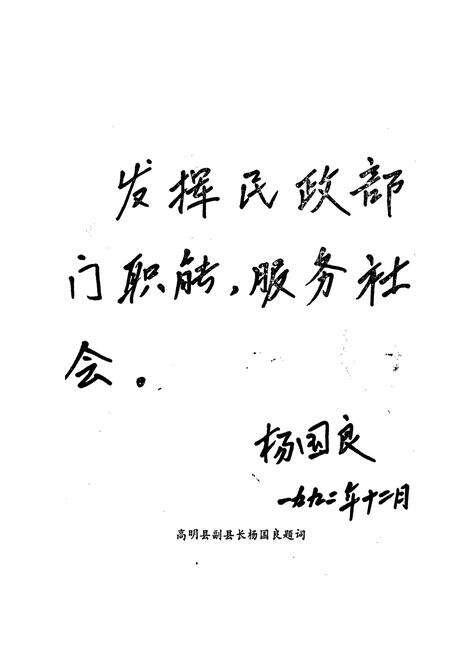 发挥民政部
门职能，服务社
会。
杨国良
一九九二年十二月
高明县副县长杨国良题词